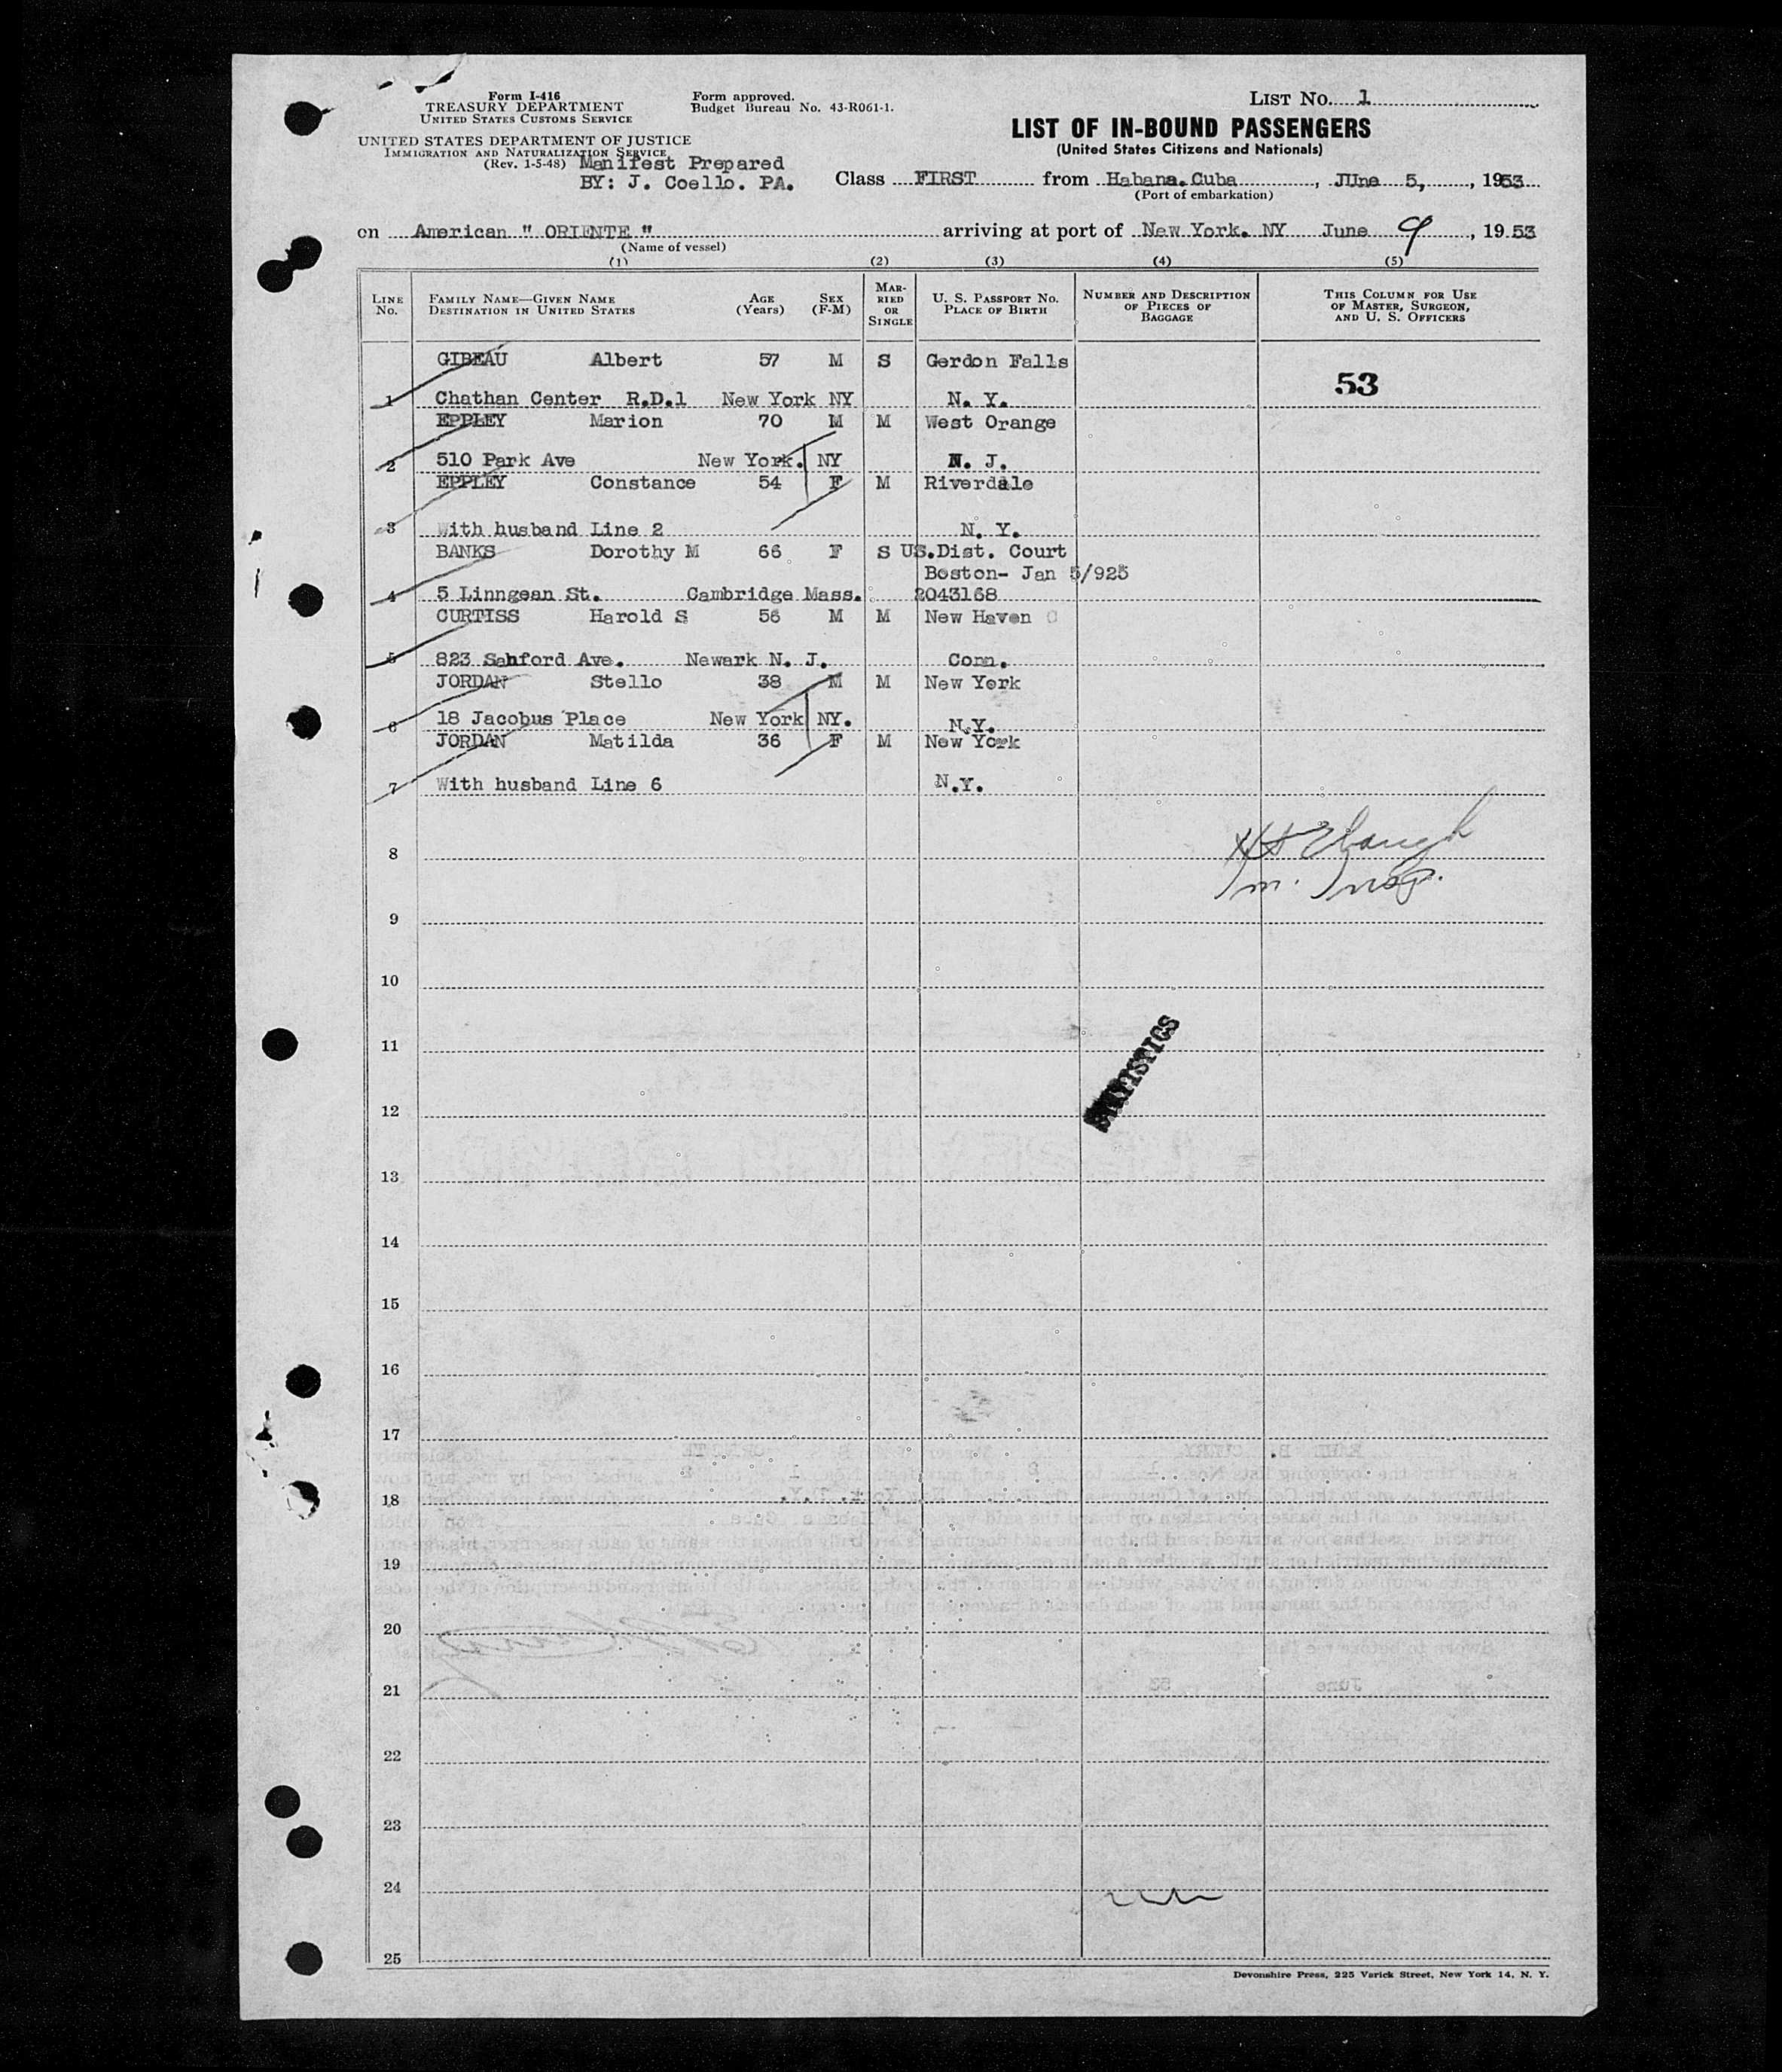 Form I-416
TREASURY DEPARTMENT
UNITED STATES CUSTOMS SERVICE
UNITED STATES DEPARTMENT OF JUSTICE
IMMIGRATION AND NATURALIZATION SERVICE
(Rev. 1-5-48)
Form approved.
Budget Bureau No. 43-R061-1.
Manifest Prepared
BY: J. Coello. PA.
LIST NO. 1
LIST OF IN-BOUND PASSENGERS
(United States Citizens and Nationals)
Class FIRST from Habana. Cuba, JUne 5, , 1953
(Port of embarkation)
on American " ORIENTE " arriving at port of New York. NY June 9, 1953
(Name of vessel)
(1) (2) (3) (4) (5)
LINE NO.
FAMILY NAME—GIVEN NAME
DESTINATION IN UNITED STATES
AGE (Years)
SEX (F-M)
MARRIED OR SINGLE
U. S. PASSPORT NO.
PLACE OF BIRTH
NUMBER AND DESCRIPTION OF PIECES OF BAGGAGE
THIS COLUMN FOR USE OF MASTER, SURGEON, AND U. S. OFFICERS
GIBEAU Albert 57 M S Gerdon Falls
53
1 Chathan Center R.D.1 New York NY N. Y.
EPPLEY Marion 70 M M West Orange
2 510 Park Ave New York. NY N. J.
EPPLEY Constance 54 F M Riverdale
3 With husband Line 2 N. Y.
BANKS Dorothy M 66 F S US.Dist. Court
Boston- Jan 5/925
4 5 Linngean St. Cambridge Mass. 2043168
CURTISS Harold S 56 M M New Haven C
5 823 Sanford Ave. Newark N. J. Conn.
JORDAN Stello 38 M M New York
6 18 Jacobus Place New York NY. N.Y.
JORDAN Matilda 36 F M New York
7 With husband Line 6 N.Y.
8
Im. Insp.
9
10
11
STATISTICS
12
13
14
15
16
17
18
19
20
21
22
23
24
25
Devonshire Press, 225 Varick Street, New York 14, N. Y.